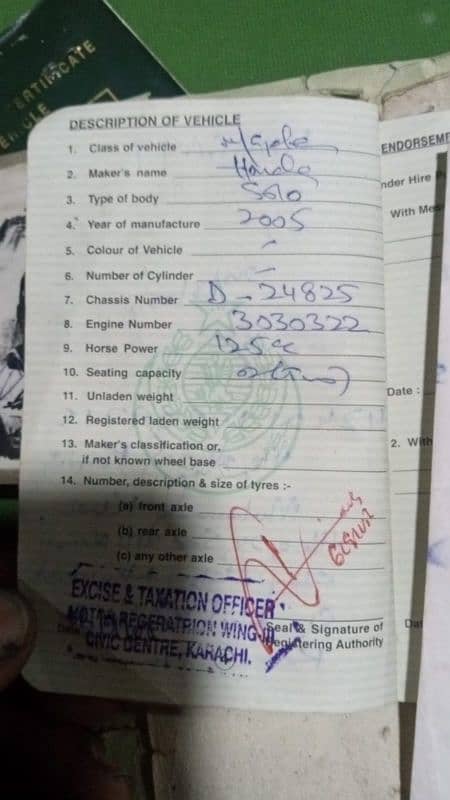 ERTIFICATE
DESCRIPTION OF VEHICLE
1. Class of vehicle M/Cycle
2. Maker's name Honda
3. Type of body Solo
4. Year of manufacture 2005
5. Colour of Vehicle -
6. Number of Cylinder -
7. Chassis Number D-24825
8. Engine Number 3030322
9. Horse Power 125cc
10. Seating capacity 02 (Two)
11. Unladen weight
12. Registered laden weight
13. Maker's classification or,
if not known wheel base
14. Number, description & size of tyres :-
(a) front axle
(b) rear axle
(c) any other axle
EXCISE & TAXATION OFFICER
MOTOR REGERATRION WING-III
CIVIC CENTRE, KARACHI.
Seal & Signature of
Registering Authority
ENDORSEME
nder Hire P
With Me
Date :
2. With
Dat